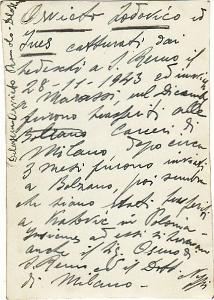 Orvieto Lodovico ed
Ines catturati dai
tedeschi a S. Remo il
28 11 1943 ed inviati
a Marassi, nel dicembre
furono trasferiti alle
Carceri di
Milano dopo circa
3 mesi furono inviati
a Bolzano, poi sembra
che siano stati trasferiti
a in
ad essi si trovavano
anche il Sig. Osimo di
S. Remo ed il Dott.
di Milano -